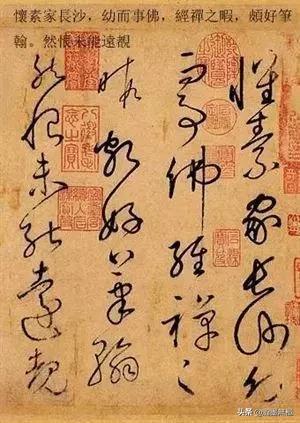 懷素家長沙，幼而事佛，經禪之暇，頗好筆
翰。然恨未能遠覩
懷素家長沙幼
而事佛經禪之
暇頗好筆翰
然恨未能遠覩
头条